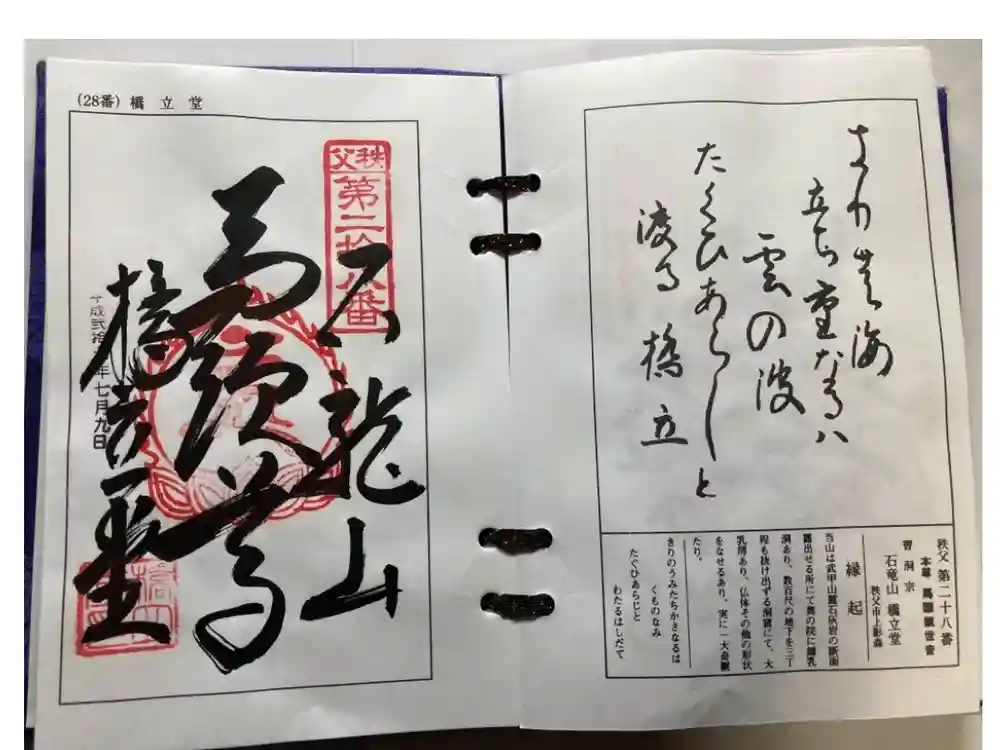 (28番) 橋立堂
秩父
第二拾八番
石龍山
馬頭尊
橋立堂
七月九日
きりの海
立ち重なるハ
雲の波
たくひあらしと
渡る橋立
秩父 第二十八番
本尊 馬頭観世音
曹洞宗
石竜山 橋立堂
秩父市上影森
縁起
当山は武甲山麓石灰岩の断面
露出せる所にて奥の院に鍾乳
洞あり、数百尺の地下を三丁
程も抜け出ずる洞窟にて、大
乳房あり、仏体その他の形状
をなせるあり、実に一大奇観
たり。
きりのうみたちかさなるは
くものなみ
たぐひあらじと
わたるはしだて